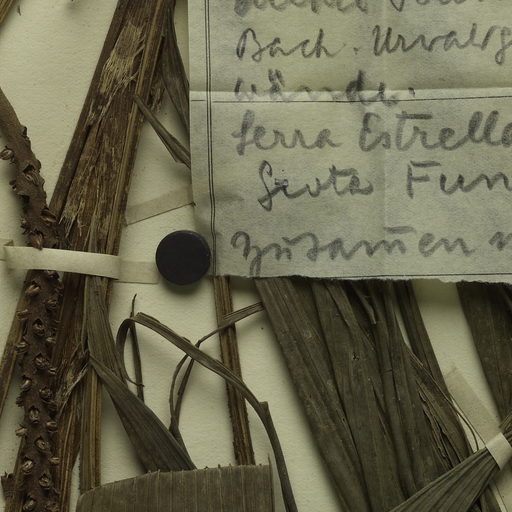 Bach. Urwald
wände.
Serra Estrella
Grota Fun
zusamen m